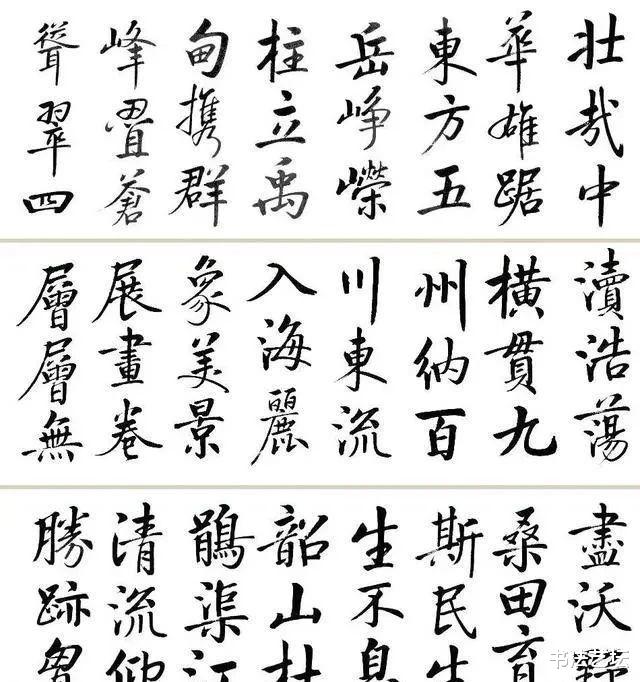 壮哉中
華雄踞
東方五
岳崢嶸
柱立禹
甸携群
峰疊蒼
聳翠四
瀆浩蕩
橫貫九
州納百
川東流
入海麗
象美景
展畫卷
層層無
盡沃
桑田育
斯民生
生不息
韶山杜
鵑渠江
清流仰
勝跡
书法艺坛